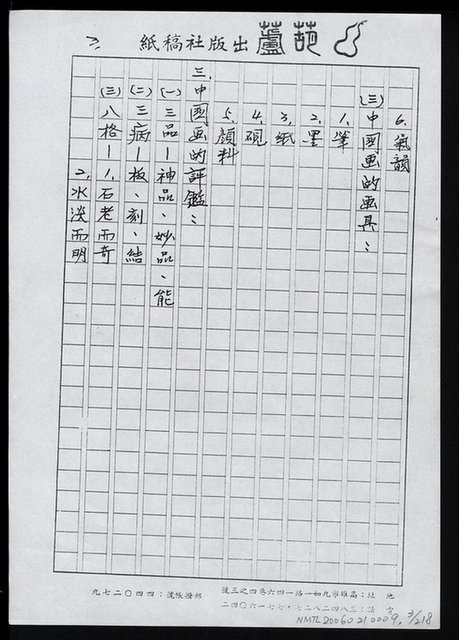 葫蘆出版社稿紙
6.氣韻
(三)中國画的画具：
1.筆
2.墨
3.紙
4.硯
5.顏料
三、中國画的評鑑：
(一)三品—神品、妙品、能
(二)三病—板、刻、結
(三)八格—1.石老而奇
2.水淡而明
地址：高雄市九如一路一四六巷四之三號
電話：三八四二八二七・七七一六〇四二
郵撥帳號：四四〇二七九
NMTL20060210009
3/218